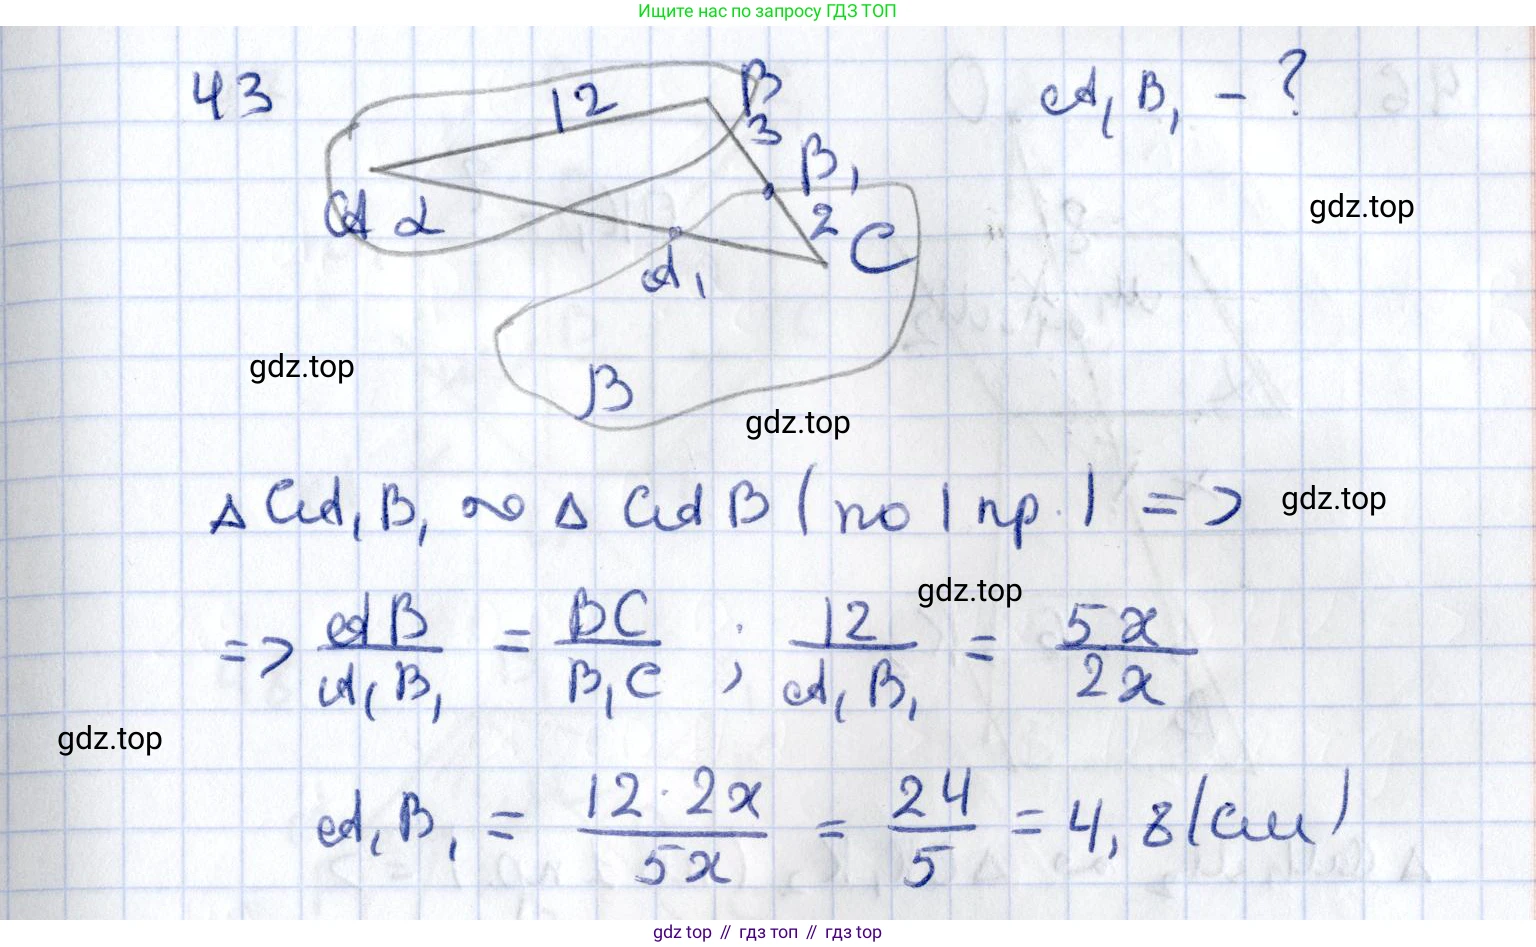 Ищите нас по запросу ГДЗ ТОП
43
12
B
A₁B₁ - ?
3
B₁
A α
2
C
gdz.top
A₁
gdz.top
β
gdz.top
Δ CA₁B₁ ∾ Δ CAB (по 1 пр.) =>
gdz.top
gdz.top
=> AB/A₁B₁ = BC/B₁C ; 12/A₁B₁ = 5x/2x
gdz.top
A₁B₁ = 12·2x/5x = 24/5 = 4,8 (см)
gdz top // гдз топ // гдз top